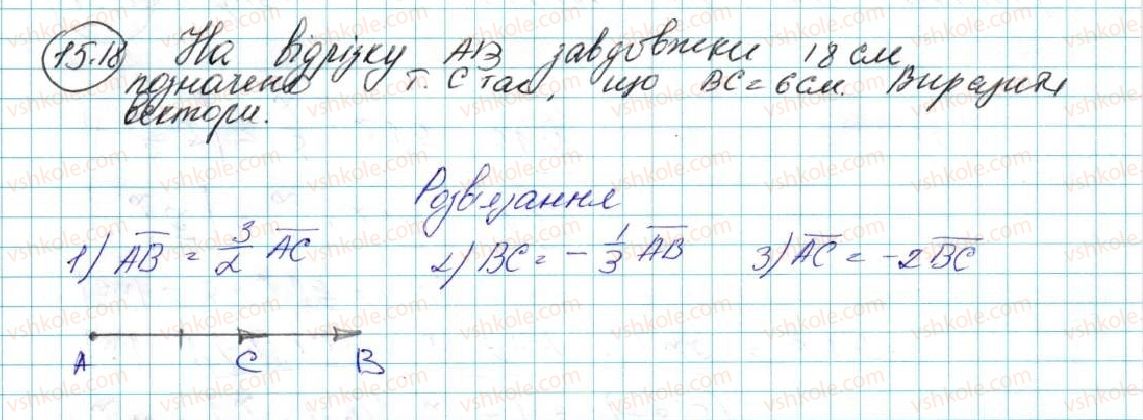 15.18 На відрізку AB завдовжки 18 см
позначено т. C так, що BC = 6 см. Виразити
вектори.
Розв'язання
1) \overline{AB} = \frac{3}{2} \overline{AC} 2) BC = -\frac{1}{3} \overline{AB} 3) \overline{AC} = -2\overline{BC}
A C B